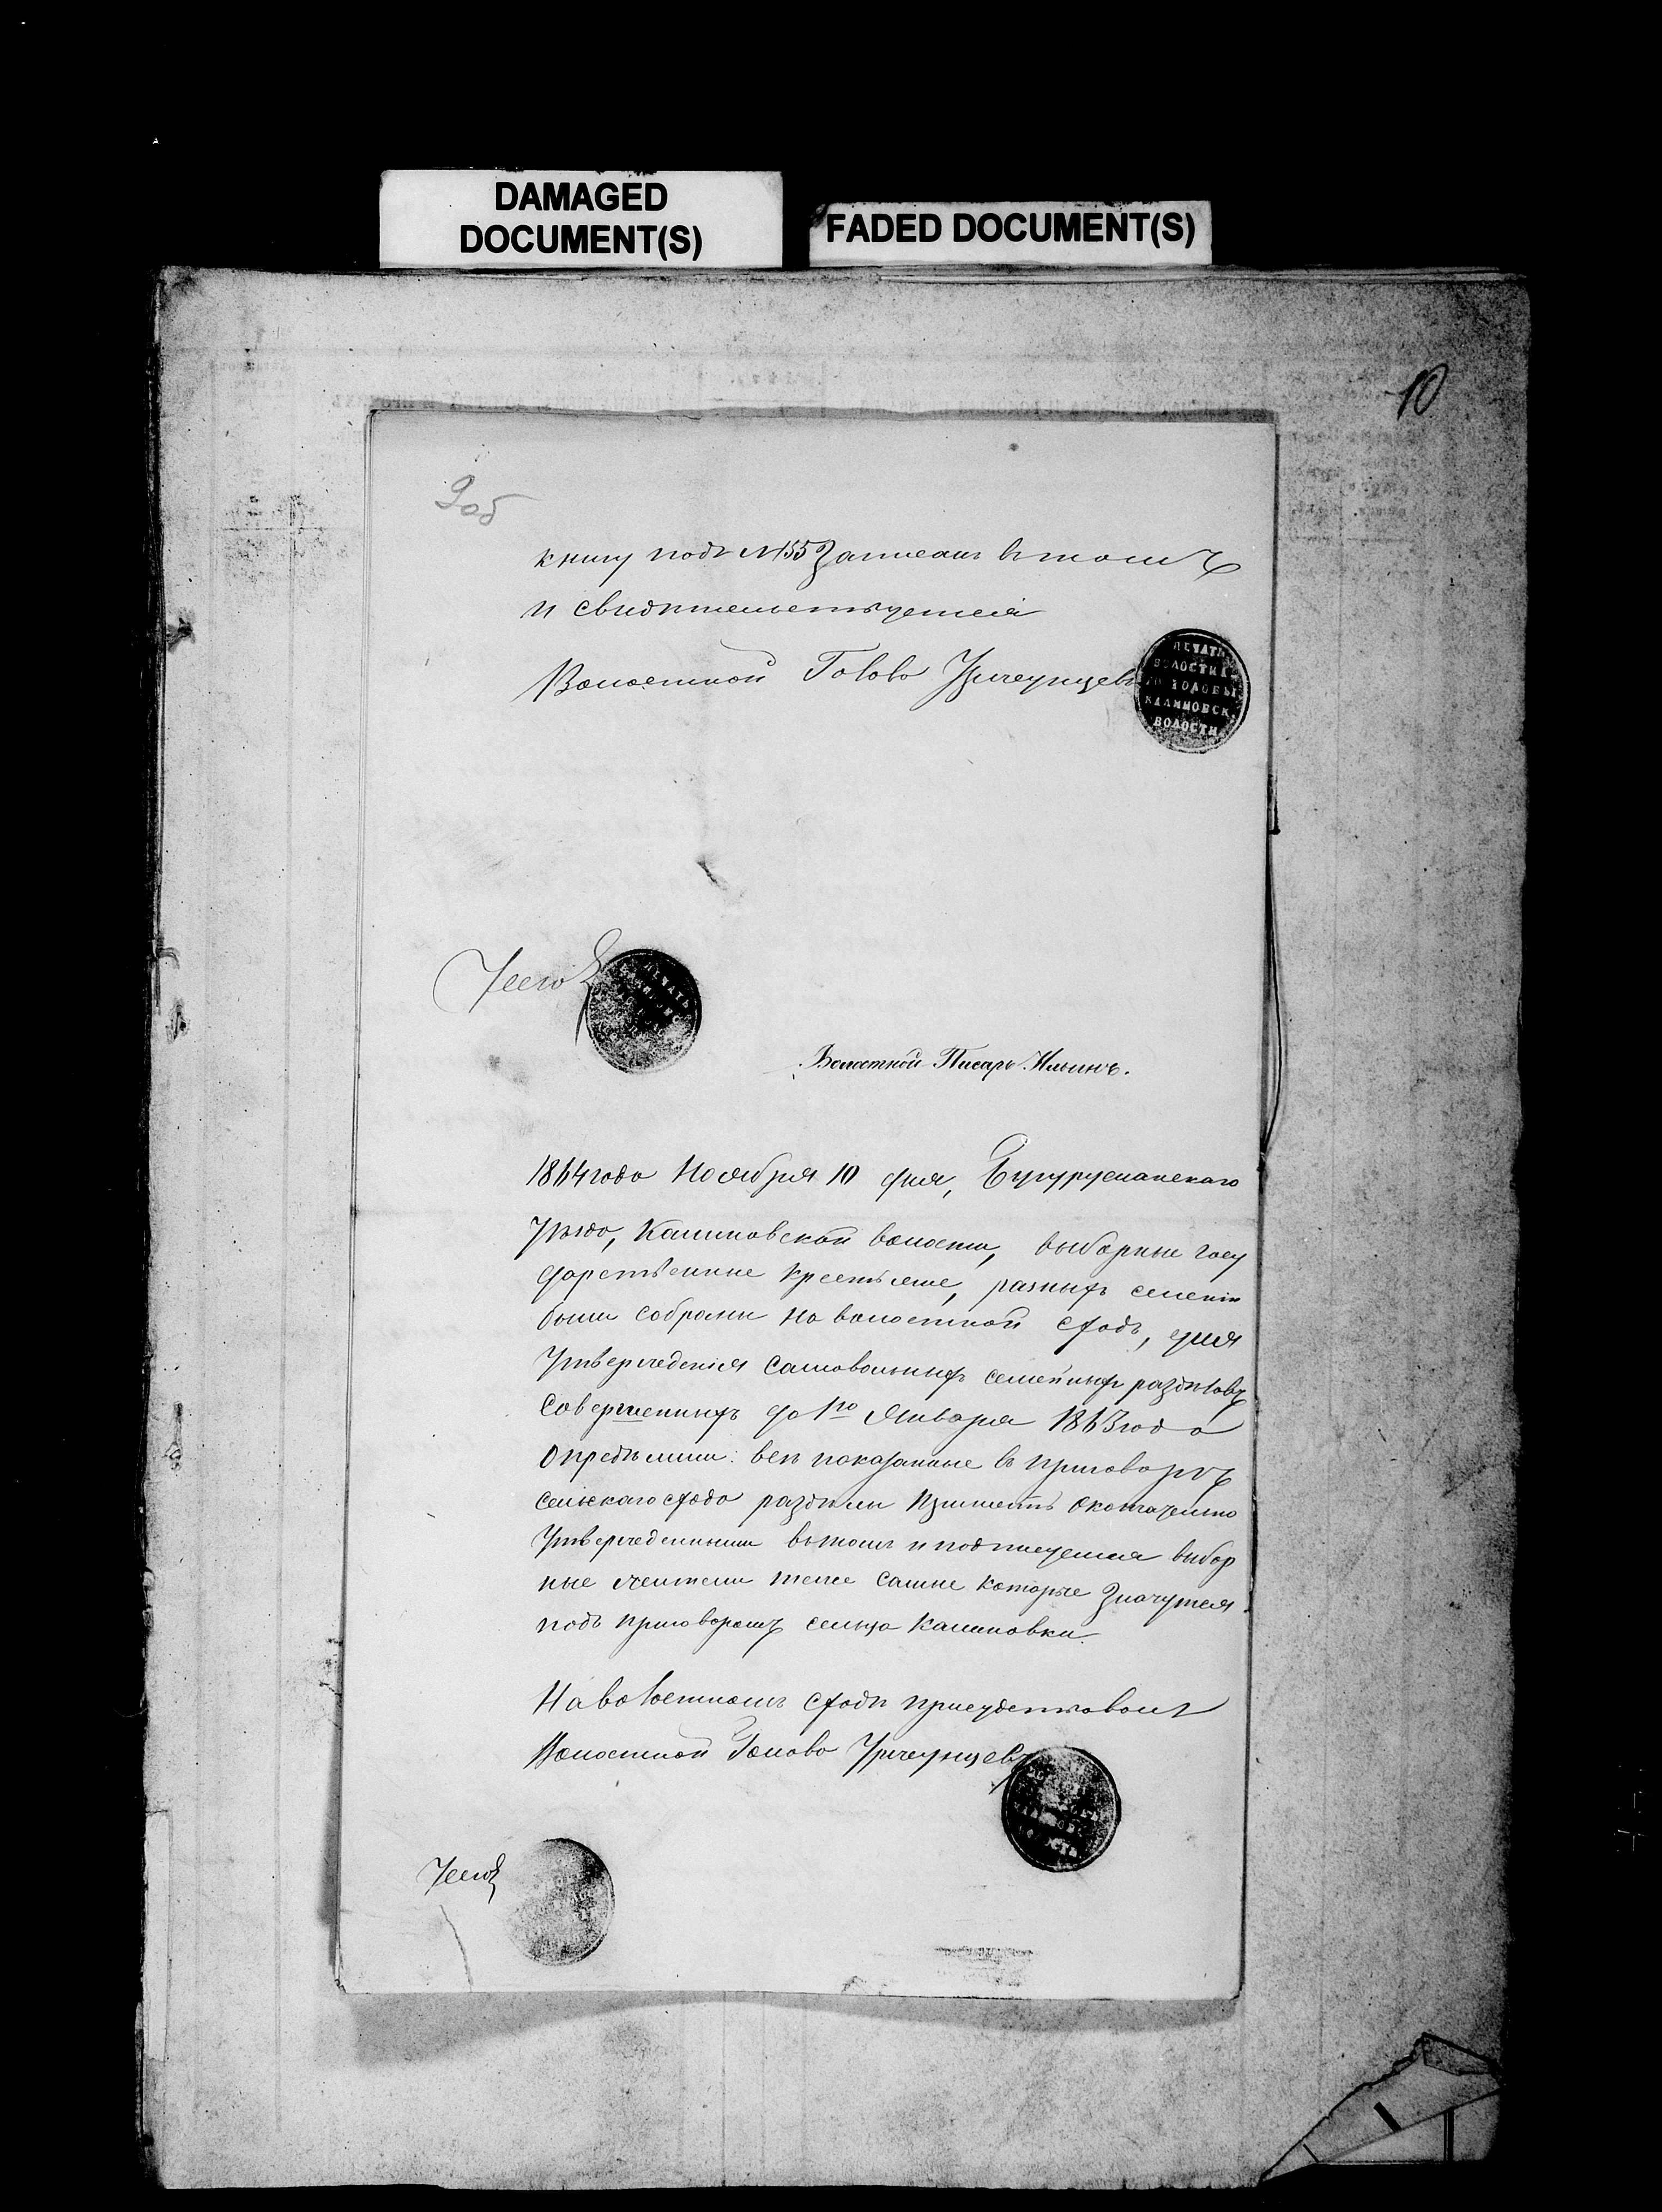 DAMAGED
DOCUMENT(S)
FADED DOCUMENT(S)
10
9об
книгу подъ №155 записанъ въ томъ
и свидѣтельствуется
Волостной Голова
ПЕЧАТЬ
ВОЛОСТНА
ГО ГОЛОВЫ
КАЛИНОВСК.
ВОЛОСТИ
ПЕЧАТЬ
Волостной Писарь Ильинъ.
1864 года Ноября 10 дня, Бугурусланскаго
Уѣзда, Калиновской волости, выборные госу
дарственные крестьяне, разныхъ селеній
были собраны на волостной сходъ, для
Утвержденія самовольныхъ семейныхъ раздѣловъ
Совершенныхъ до 1го Января 1863 года
Опредѣлили: всѣ показанные въ приговорѣ
сельскаго схода раздѣлы окончательно
Утвержденными въ томъ и подписуемся выбор
ные теже самые которые Значутся
подъ приговоромъ сельца Калиновки.
На волостномъ сходѣ присудствовалъ
Волостной Голова